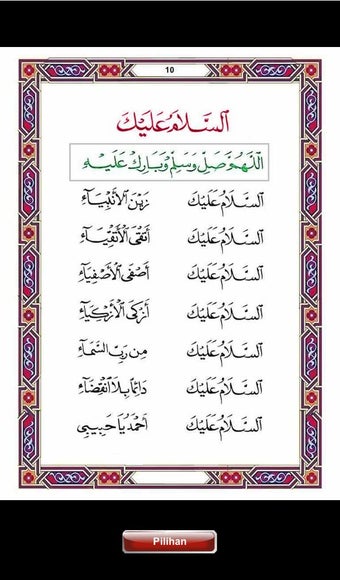 10
السَّلَامُ عَلَيْكَ
اَللّٰهُمَّ صَلِّ وَسَلِّمْ وَبَارِكْ عَلَيْهِ
اَلسَّلَامُ عَلَيْكَ زَيْنَ الْأَنْبِيَاءِ
اَلسَّلَامُ عَلَيْكَ أَتْقَى الْأَتْقِيَاءِ
اَلسَّلَامُ عَلَيْكَ أَصْفَى الْأَصْفِيَاءِ
اَلسَّلَامُ عَلَيْكَ أَزْكَى الْأَزْكِيَاءِ
اَلسَّلَامُ عَلَيْكَ مِنْ رَبِّ السَّمَاءِ
اَلسَّلَامُ عَلَيْكَ دَائِمًا بِلَا انْقِضَاءِ
اَلسَّلَامُ عَلَيْكَ أَحْمَدُ يَا حَبِيبِي
Pilihan